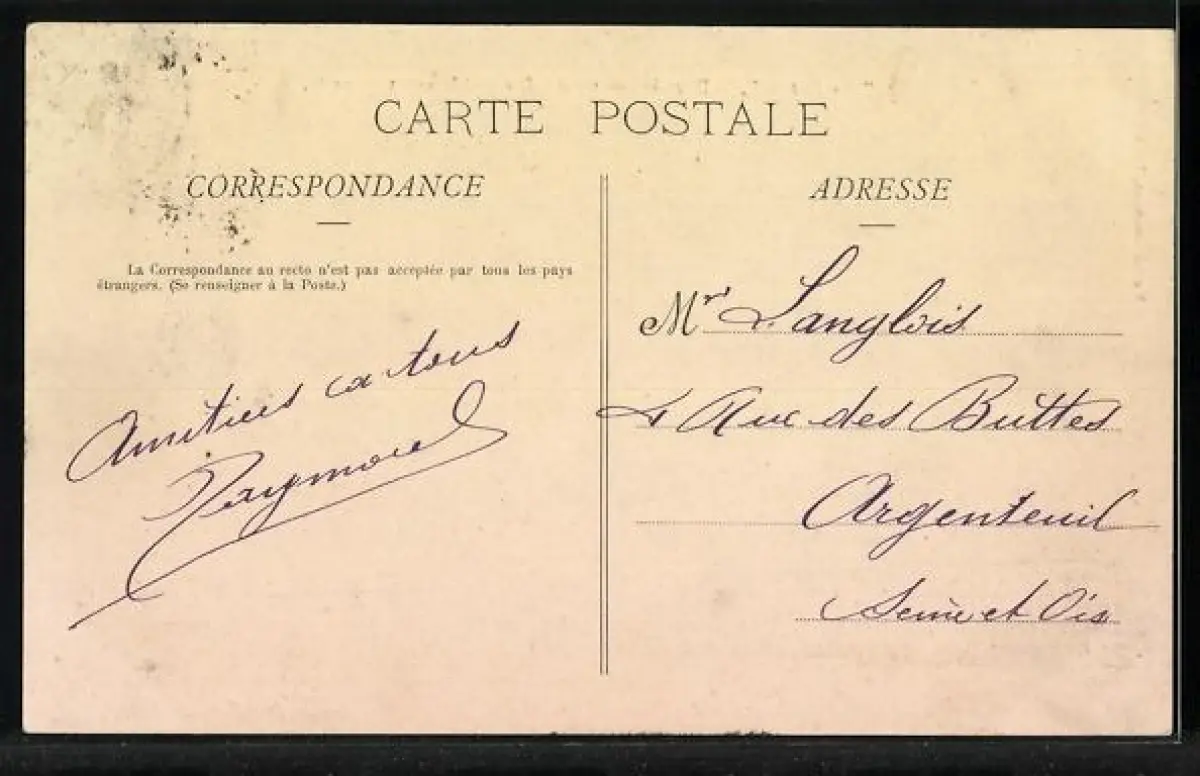 CARTE POSTALE
CORRESPONDANCE
ADRESSE
La Correspondance au recto n'est pas acceptée par tous les pays
étrangers. (Se renseigner à la Poste.)
Mr Langlois
4 Rue des Buttes
Argenteuil
Seine et Ois
Amitiés a tous
Raymond